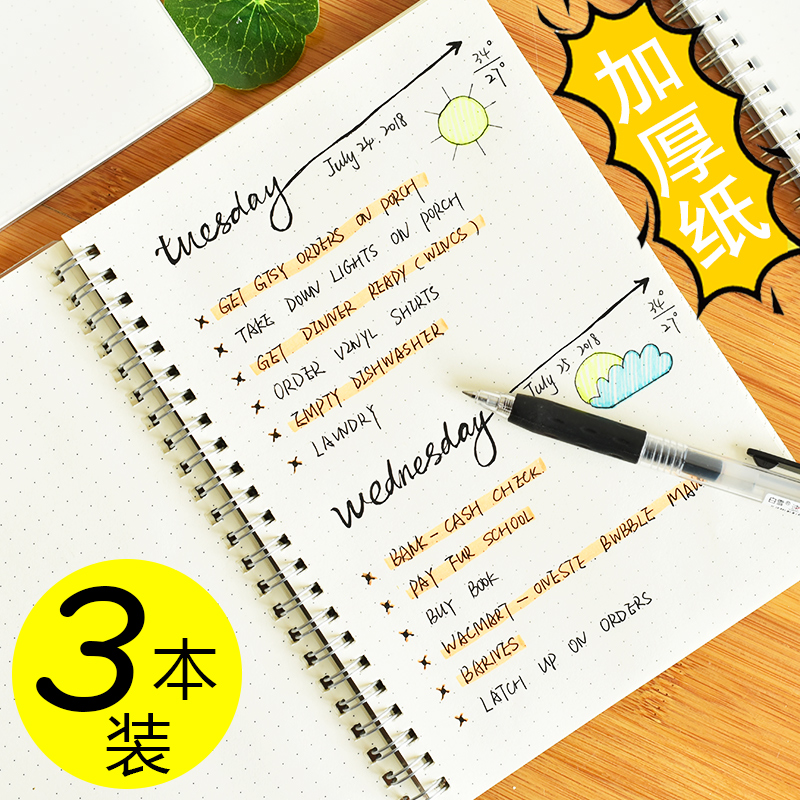 加厚纸
34°
27°
July 24. 2018
tuesday
GET GTSY ORDERS ON PORCH
TAKE DOWN LIGHTS ON PORCH
GET DINNER READY (WINGS)
ORDER VINYL SHIRTS
EMPTY DISHWASHER
LAUNDRY
34°
27°
July 25 2018
wednesday
BANK-CASH CHECK
PAY FUR SCHOOL
BUY BOOK
WACMART-ONESTE BWBBLE MA
BARIVES
LATCH UP ON ORDERS
白雪
3本
装